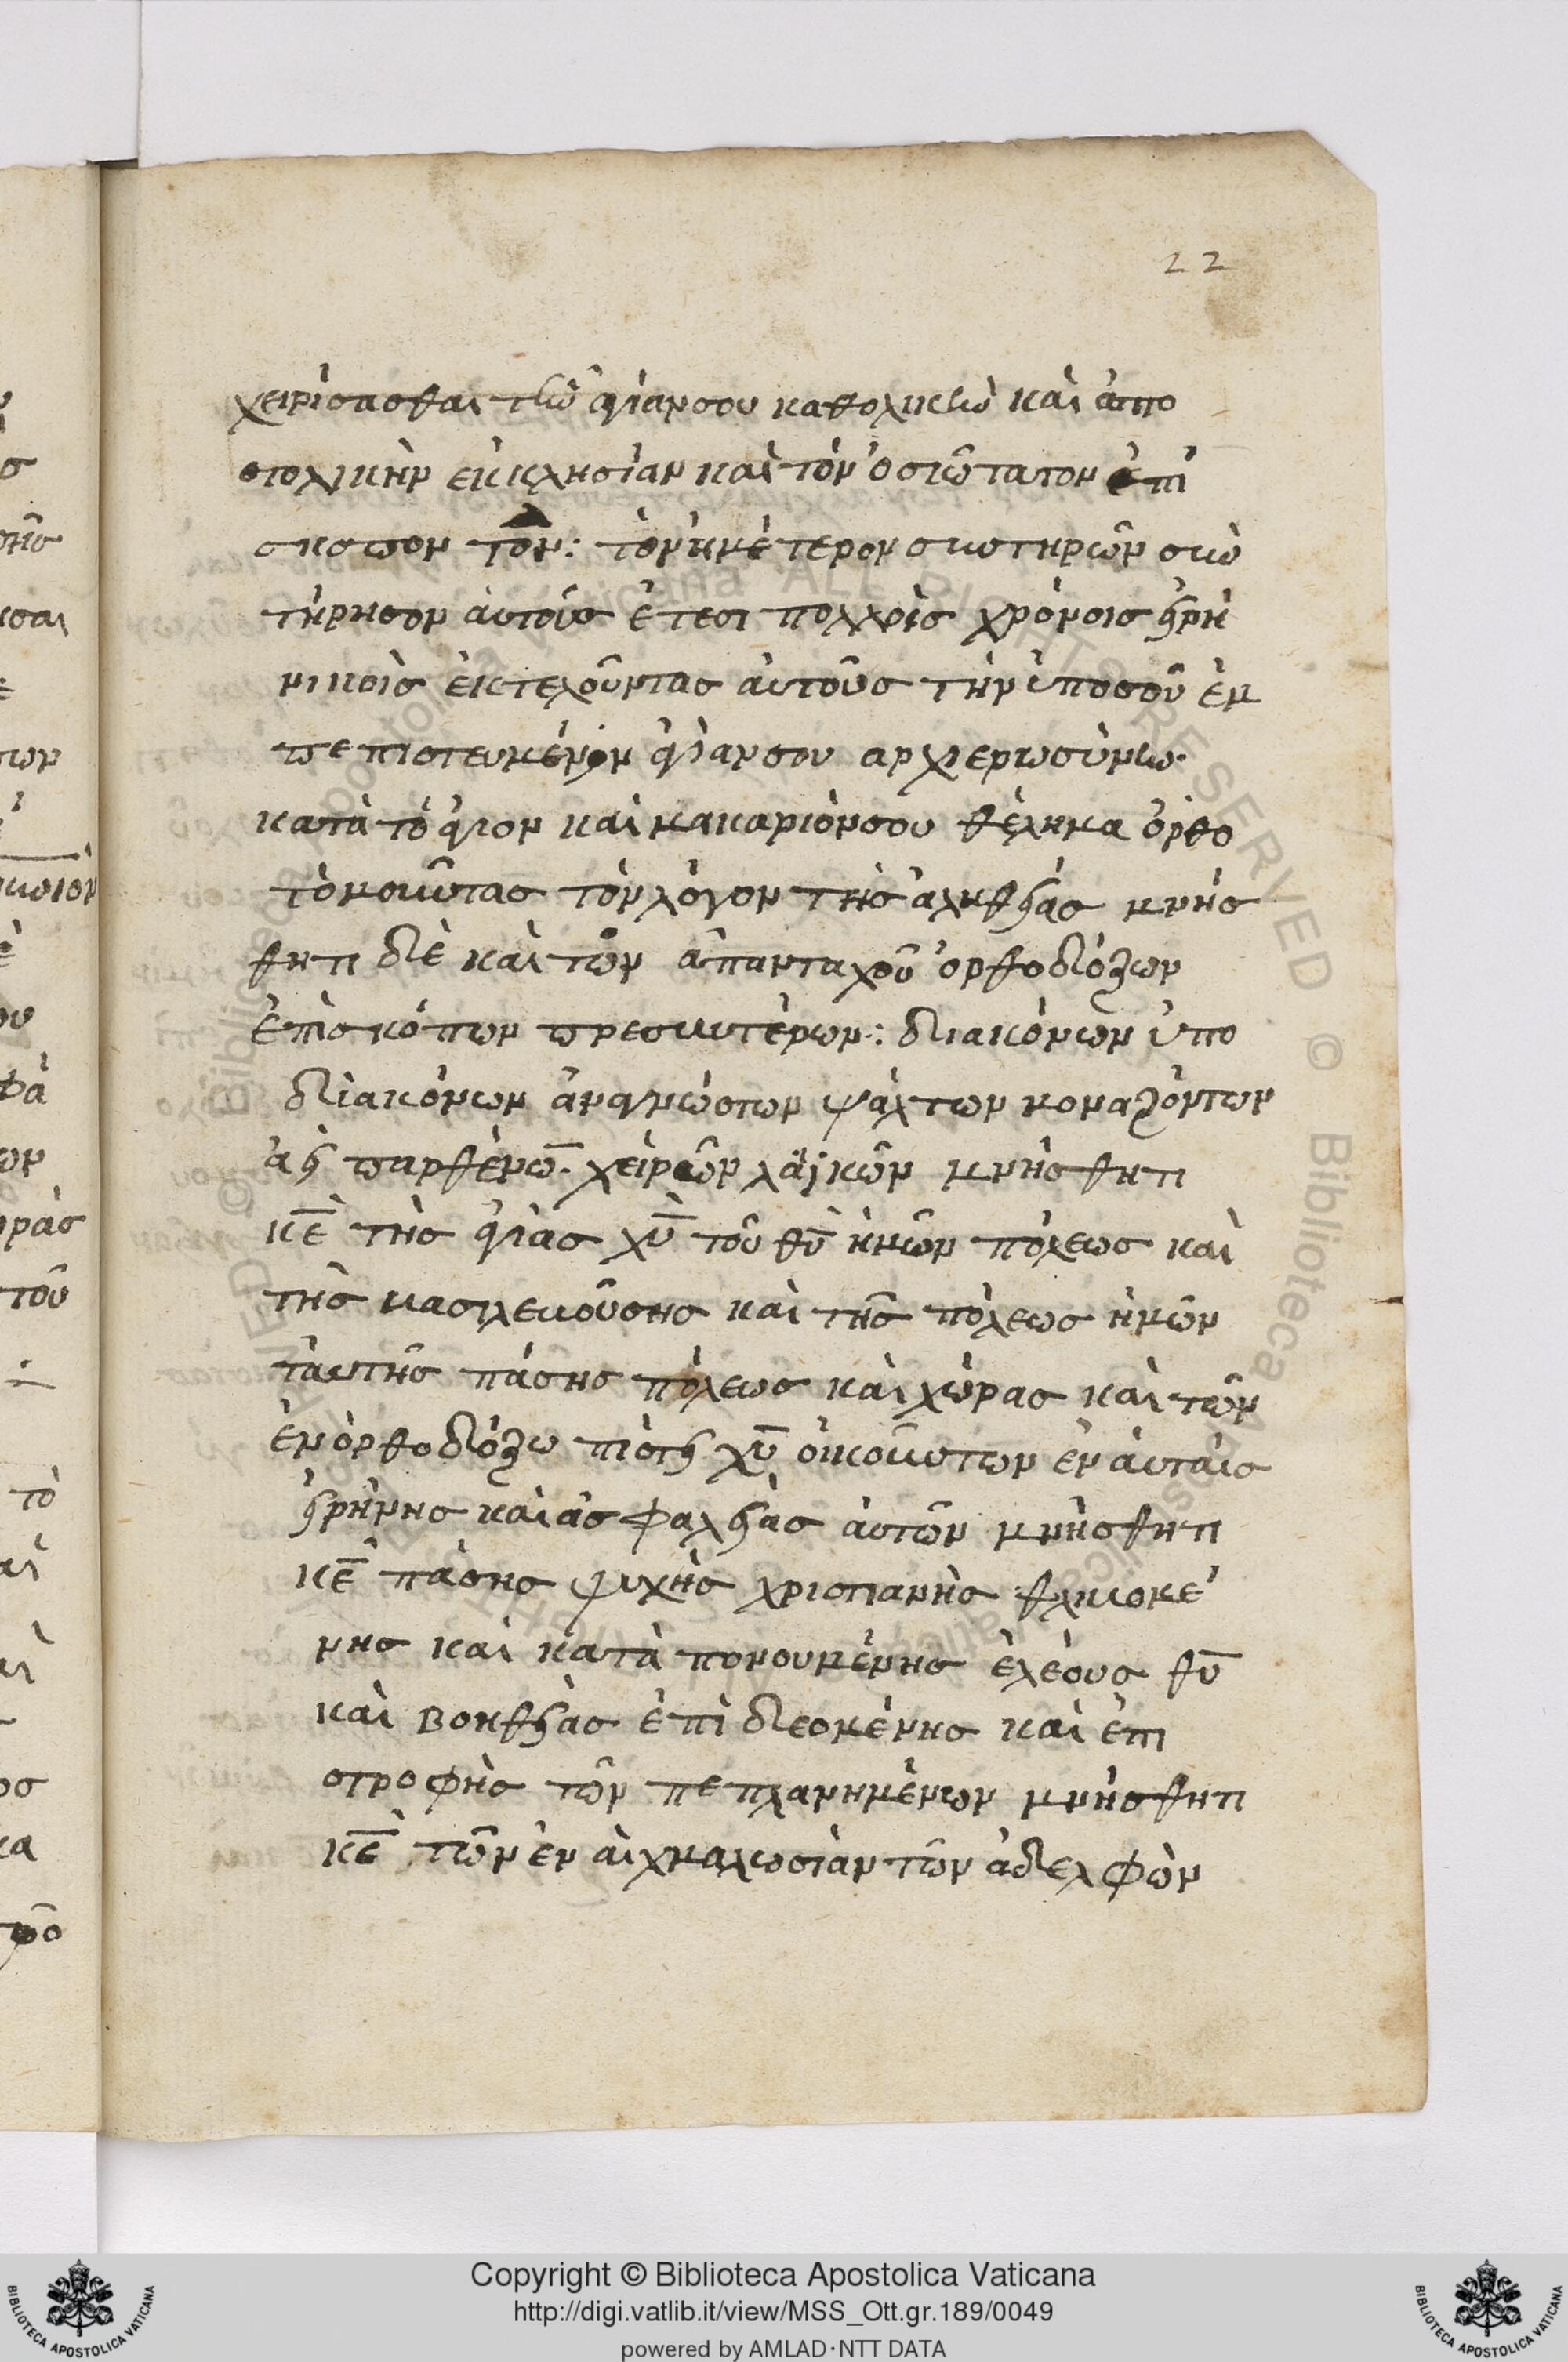 22
χειρίσασθαι τὴν ἁγίαν σου καθολικὴν καὶ ἀπο
στολικὴν ἐκκλησίαν καὶ τὸν ὁσιώτατον ἐπί
σκοπον τὸν: τὸν ἡμέτερον συντηρῶν συν
τήρησον ἀυτοὺς ἔτεσι πολλοῖς χρόνοις εἰρη
νικοῖς ἐκτελοῦντας ἀυτοὺς τὴν ὑποσοῦ ἐμ
πεπιστευμένην ἁγίαν σου αρχιερωσύνην.
κατὰ τὸ ἅγιον καὶ μακαριόν σου θέλημα ὀρθο
τομοῦντας τὸν λόγον τῆς ἀληθείας μνήσ
θητι δὲ καὶ τῶν ἁπανταχοῦ ὀρθοδόξων
ἐπισκόπων πρεσβυτέρων: διακόνων ὑπο
διακόνων ἀναγνώστων ψάλτων μοναζόντων
ἀεὶ παρθένω̅. χειρῶν λαϊκῶν μνήσθητι
κ̅ε̅ τῆς ἁγίας χ̅υ̅ τοῦ θ̅υ̅ ἡμῶν πόλεως καὶ
τῆς βασιλευούσης καὶ τῆς πόλεως ἡμῶν
ταυτης πάσης πόλεως καὶ χώρας καὶ τῶν
ἐν ὀρθοδόξω πίστει χ̅υ̅ οἰκούντων ἐν ἀυταῖς
εἰρήνης καὶ ἀσφαλείας ἀυτῶν μνήσθητι
κ̅ε̅ πάσης ψυχῆς χριστιανῆς θλιβομέ
νης καὶ κατὰ πονουμένης ἐλέους θ̅υ̅
καὶ βοηθείας ἐπὶ δεομένης καὶ ἐπι
στροφῆς τῶν πεπλανημένων μνήσθητι
κ̅ε̅ τῶν ἐν ἀιχμαλωσίαν τῶν ἀδελφῶν
Copyright © Biblioteca Apostolica Vaticana
http://digi.vatlib.it/view/MSS_Ott.gr.189/0049
powered by AMLAD·NTT DATA
BIBLIOTECA APOSTOLICA VATICANA
BIBLIOTECA APOSTOLICA VATICANA